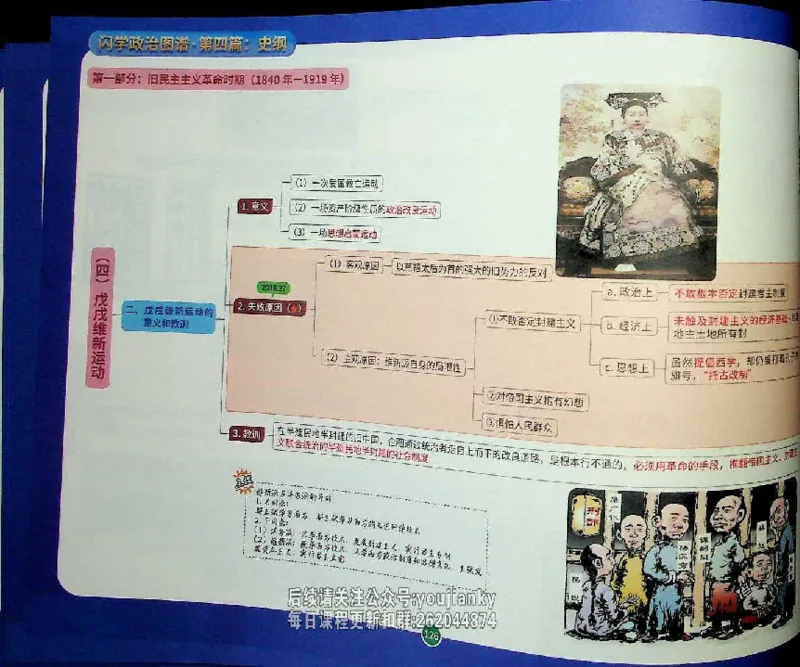 闪学政治图谱·第四篇：史纲
第一部分：旧民主主义革命时期（1840年－1919年）
（四）戊戌维新运动
二、戊戌维新运动的
意义和教训
1.意义
（1）一次爱国救亡运动
（2）一场资产阶级性质的政治改良运动
（3）一场思想启蒙运动
2018.27
2.失败原因（★）
（1）客观原因
以慈禧太后为首的强大的旧势力的反对
（2）主观原因：维新派自身的局限性
①不敢否定封建主义
a.政治上
不敢根本否定封建君主制度
b.经济上
未触及封建主义的经济基础
地主土地所有制
c.思想上
虽然提倡西学，却仍要打着孔子
旗号，“托古改制”
②对帝国主义抱有幻想
③惧怕人民群众
3.教训
在半殖民地半封建的旧中国，企图通过统治者走自上而下的改良道路，是根本行不通的，必须用革命的手段，推翻帝国主义、封建主
义联合统治的半殖民地半封建的社会制度
1.共同点：
2.不同点：
刑部
康广仁
杨锐
杨深秀
谭嗣同
后续请关注公众号:youjianky
每日课程更新扣群:262044874
126